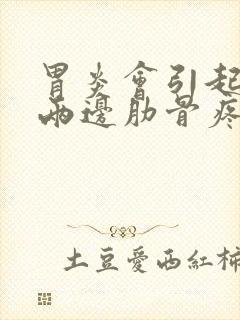 胃炎會引起
兩邊肋骨疼
土豆愛西紅柿